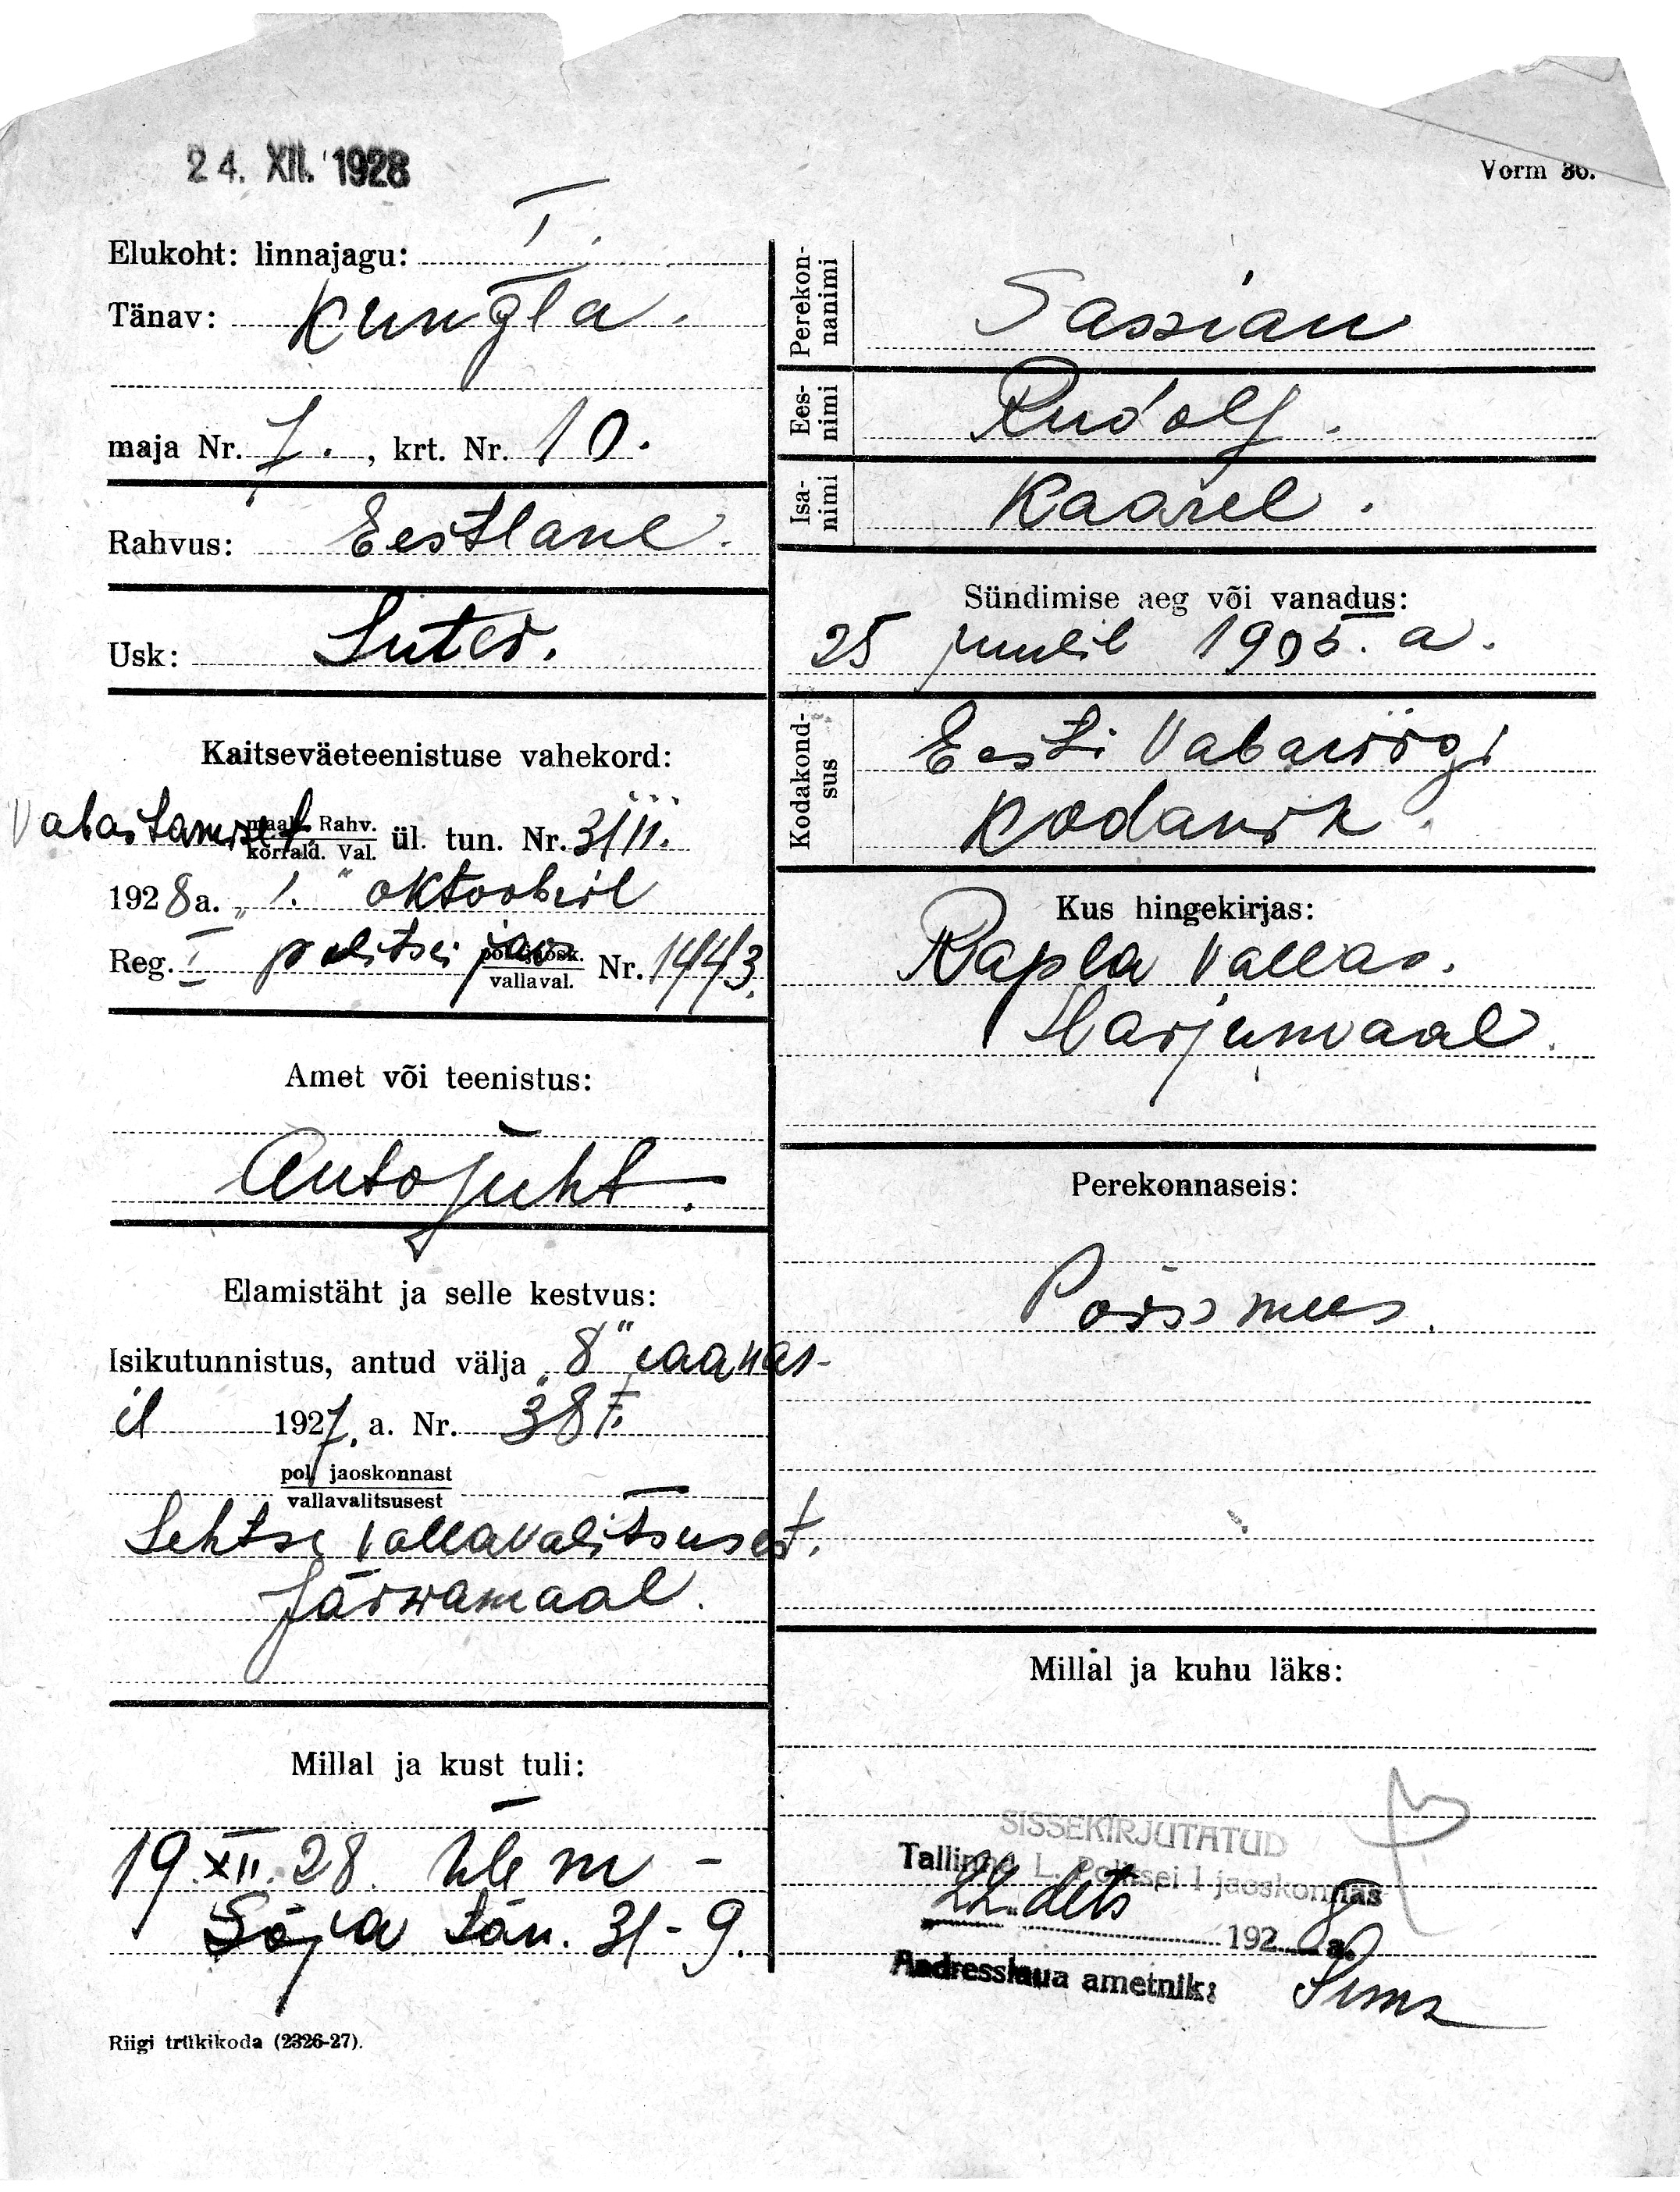 24. XII. 1928
Vorm 30.
Elukoht: linnajagu: I
Tänav: Kungla.
maja Nr. 7., krt. Nr. 10.
Rahvus: Eestlane.
Usk: Luter.
Kaitseväeteenistuse vahekord:
Vabastamise Rahv. ül. tun. Nr. 3/II.
kõrrald. Val.
1928 a. „1." oktoobril
Reg. I politsei jaos Nr. 1443.
vallaval.
Amet või teenistus:
Autojuht.
Elamistäht ja selle kestvus:
Isikutunnistus, antud välja „8" jaanuar-
il 1927. a. Nr. 387.
pol. jaoskonnast
vallavalitsusest
Lehtse Vallavalitsusest.
Järwamaal.
Millal ja kust tuli:
19.XII.28. ülem
Sõja tän. 31-9.
Riigi trükikoda (2326-27).
Perekon-
nanimi
Sassian
Ees-
nimi
Rudolf.
Isa-
nimi
Kaarel.
Sündimise aeg või vanadus:
25 juulil 1905. a.
Kodakond-
sus
Eesti Vabariigi
Kodanik.
Kus hingekirjas:
Rapla Vallas.
Harjumaal.
Perekonnaseis:
Poissmees.
Millal ja kuhu läks:
SISSEKIRJUTATUD
Tallinna L. Politsei I jaoskonnas
22. dets 1928 a.
Aadresslaua ametnik: